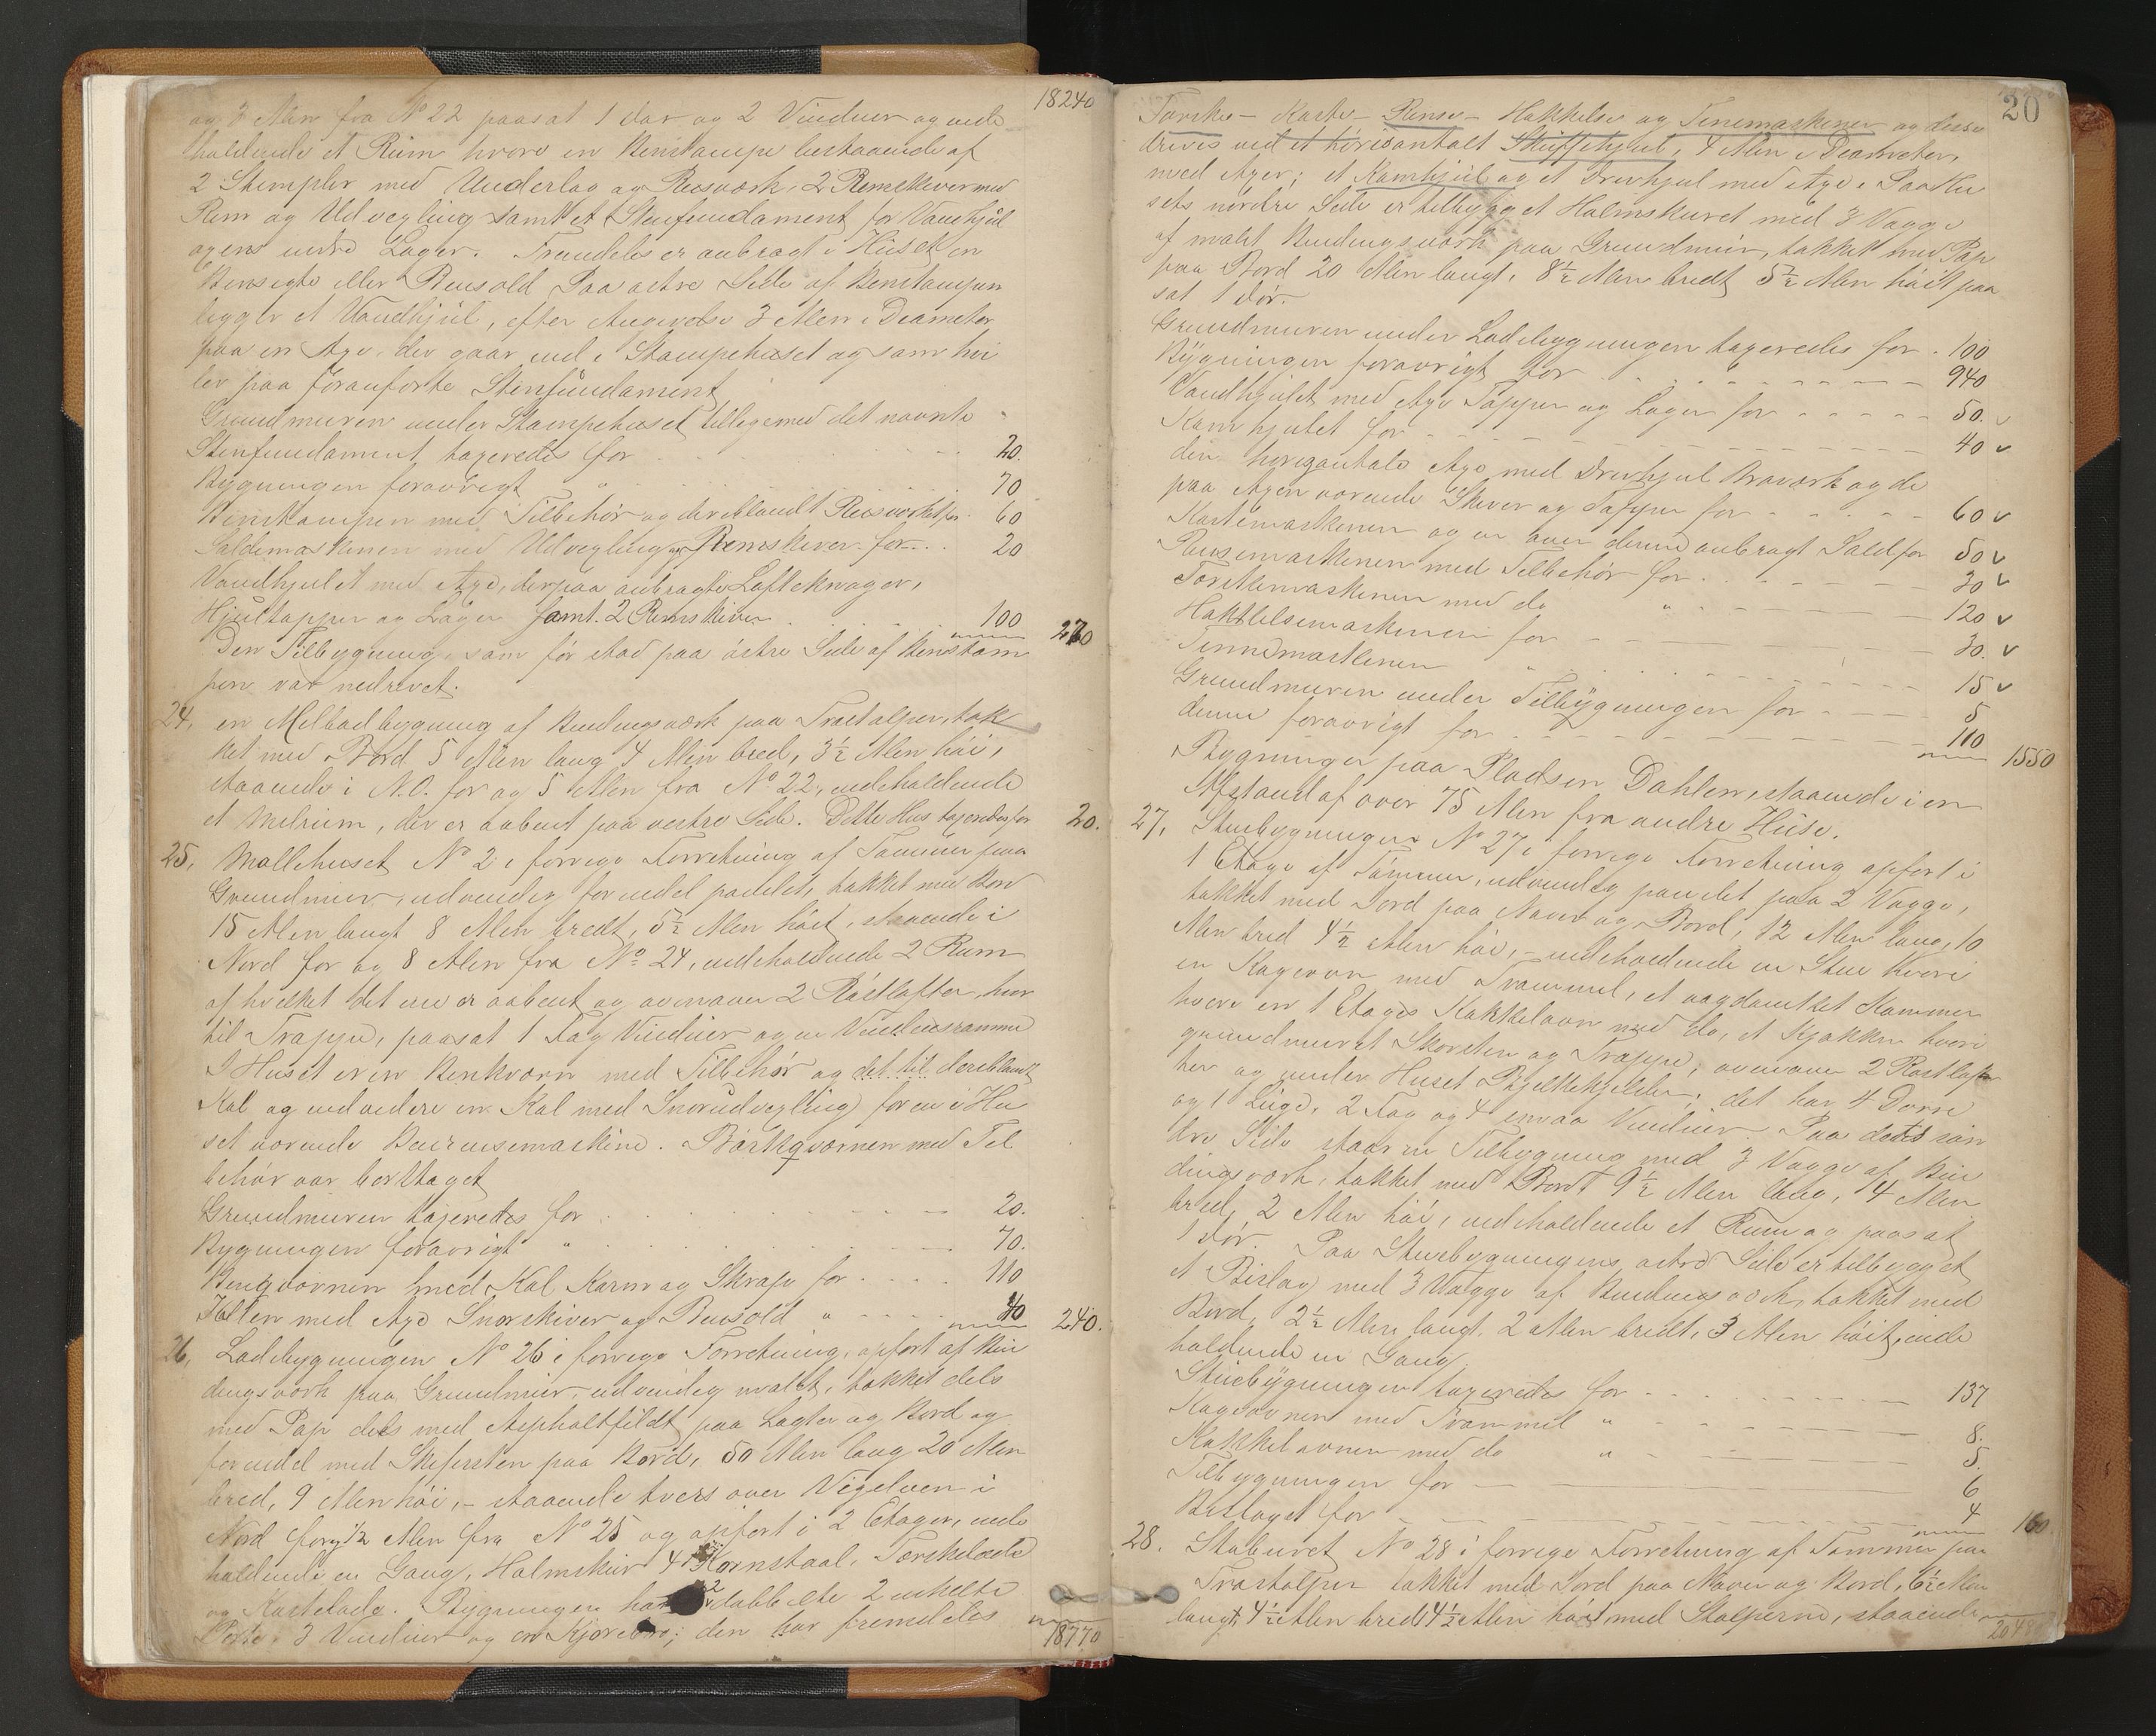 18240
og 3 Alen fra No 22 paasat 1 dør og 2 Vinduer og inde
holdende et Rum hvori en Benstampe bestaaende af
2 Stempler med Underlag og Reisværk, 2 Remskiver med
Rem og Udvexling samt et Stenfundament for Vandhjul
axens indre Lager. Fremdeles er anbragt i Huset en
Bensigte eller Bensold Paa østre Side af Benstampen
ligger et Vandhjul, efter Angivelse 3 Alen i Diameter
paa en Axe, der gaar ind i Stampehuset og som hvi
ler paa foranførte Stenfundament
Grundmuren under Stampehuset tilligemed det nævnte
Stenfundament taxeredes for 20.
Bygningen forøvrigt " 70
Benstampen med Tilbehør og deriblandt Reisværket for 60
Soldemaskinen med Udvexling og Remskiver for 20
Vandhjulet med Axe, derpaa anbragte Løfteknager,
Hjultapper og Lager samt 2 Remskiver 100
270
Den Tilbygning, som før stod paa østre Side af Benstam
pen var nedrevet.
24. en Melbodbygning af Bindingsværk paa Træstolper, tæk
ket med Bord 5 Alen lang 4 Alen bred, 3½ Alen høi,
staaende i N.O. for og 5 Alen fra No 22, indeholdende
et Melrum, der er aabent paa vestre Side. Dette Hus taxeredes for 20.
25. Møllehuset No 2 i forrige Forretning af Tømmer paa
Grundmur, udvendig for endel panelet, tækket med Bord
15 Alen langt 8 Alen bredt, 5½ Alen høit, staaende i
Nord for og 8 Alen fra No 24, indeholdende 2 Rum
af hvilket det ene er aabent og ovenover 2 Røstlofter, hvor
til Trappe, paasat 1 Fag Vinduer og en Vinduesramme
I Huset er en Benkværn med Tilbehør og det til deriblandt
Kal og endvidere en Kal med Snorudvexling for en i Hu
set værende Benrensemaskine. Barkqværnen med Til
behør var borttaget
Grundmuren taxeredes for 20.
Bygningen forøvrigt " 70.
Benqværnen med Kal Karm og Skrape for 110
Kallen med Axe Snorskiver og Bensold " 40
240.
26. Ladebygningen No 26 i forrige Forretning, opført af Bin
dingsværk paa Grundmur, udvendig malet, tækket dels
med Pap dels med Asphaltfildt paa Lægter og Bord og
for endel med Skifersten paa Bord, 50 Alen lang 20 Alen
bred, 9 Alen høi, - staaende tvers over Vigelven i
Nord for og ½ Alen fra No 25 og opført i 2 Etager, inde
holdende en Gang, Halmskur 4 Kornstaal, Tærskelade
og Kastelade. Bygningen har 2 dobbelte 2 enkelte
Porte, 3 Vinduer og en Kjørebro; den har fremdeles
18770
20
Tærske- Kaste- Rense- Hakkelse og Tenemaskiner og disse
drives ved et horisontalt Skuffehjul, 4 Alen i Diameter,
med Axer; et Kamhjul og et Drevhjul med Axe. Paa Hu
sets nordre Side er tilbygget et Halmskuret med 3 Vægge
af malet Bindingsværk paa Grundmur, tækket med Pap
paa Bord 20 Alen langt, 8½ Alen bredt 5½ Alen høit paa
sat 1 dør.
Grundmuren under Ladebygningen taxeredes for 100
Bygningen forøvrigt for 940
Vandhjulet med Axe Tapper og Lager for 50. v
Kamhjulet for 40 v
den horizontale Axe med Drevhjul Braværk og de
paa Axen værende Skiver og Tapper for 60 v
Kastemaskinen og en over denne anbragt Sold for 50 v
Rensemaskinen med Tilbehør for 30 v
Tærskemaskinen med do " 120 v
Hakkelsemaskinen for 30. v
Tennemaskinen " 15 v
Grundmuren under Tilbygningen for 5
denne forøvrigt for 110
1550
Bygninger paa Pladsen Dahlen, staaende i en
Afstand af over 75 Alen fra andre Huse.
27. Stuebygningen No 27 i forrige Forretning opført i
1 Etage af Tømmer, udvendig panelet paa 2 Vægge,
tækket med Jord paa Næver og Bord, 12 Alen lang, 10
Alen bred 4½ Alen høi, - indeholdende en Stue hvori
en Kageovn med Trommel, et aagdømket Kammer
hvori en 1 Etages Kakkelovn med do, et Kjøkken hvori
grundmuret Skorsten og Trappe, ovenover 2 Røstlof
ter og under Huset Bjelkekjelder, det har 4 Dørre
og 1 Luge, 2 Fag og 4 smaa Vinduer. Paa dets søn
dre Side staar en Tilbygning med 3 Vægge af Bin
dingsværk, tækket med Bord 9½ Alen lang, 4 Alen
bred, 2 Alen høi, indeholdende et Rum og paasat
1 dør. Paa Stuebygningens østre Side er tilbygget
et Bislag med 3 Vægge af Bindingsværk, tækket med
Bord, 2½ Alen langt. 2 Alen bredt, 3 Alen høit, inde
holdende en Gang.
Stuebygningen taxeredes for 137
Kageovnen med Trommel " 8.
Kakkelovnen med do " 5.
Tilbygningen for 6
Bislaget for 4
160
28. Staburet No 28 i forrige Forretning af Tømmer paa
Træstolper tækket med Jord paa Næver og Bord, 6½ Alen
langt 4½ Alen bredt 4½ Alen høit med Stolperne, staaende